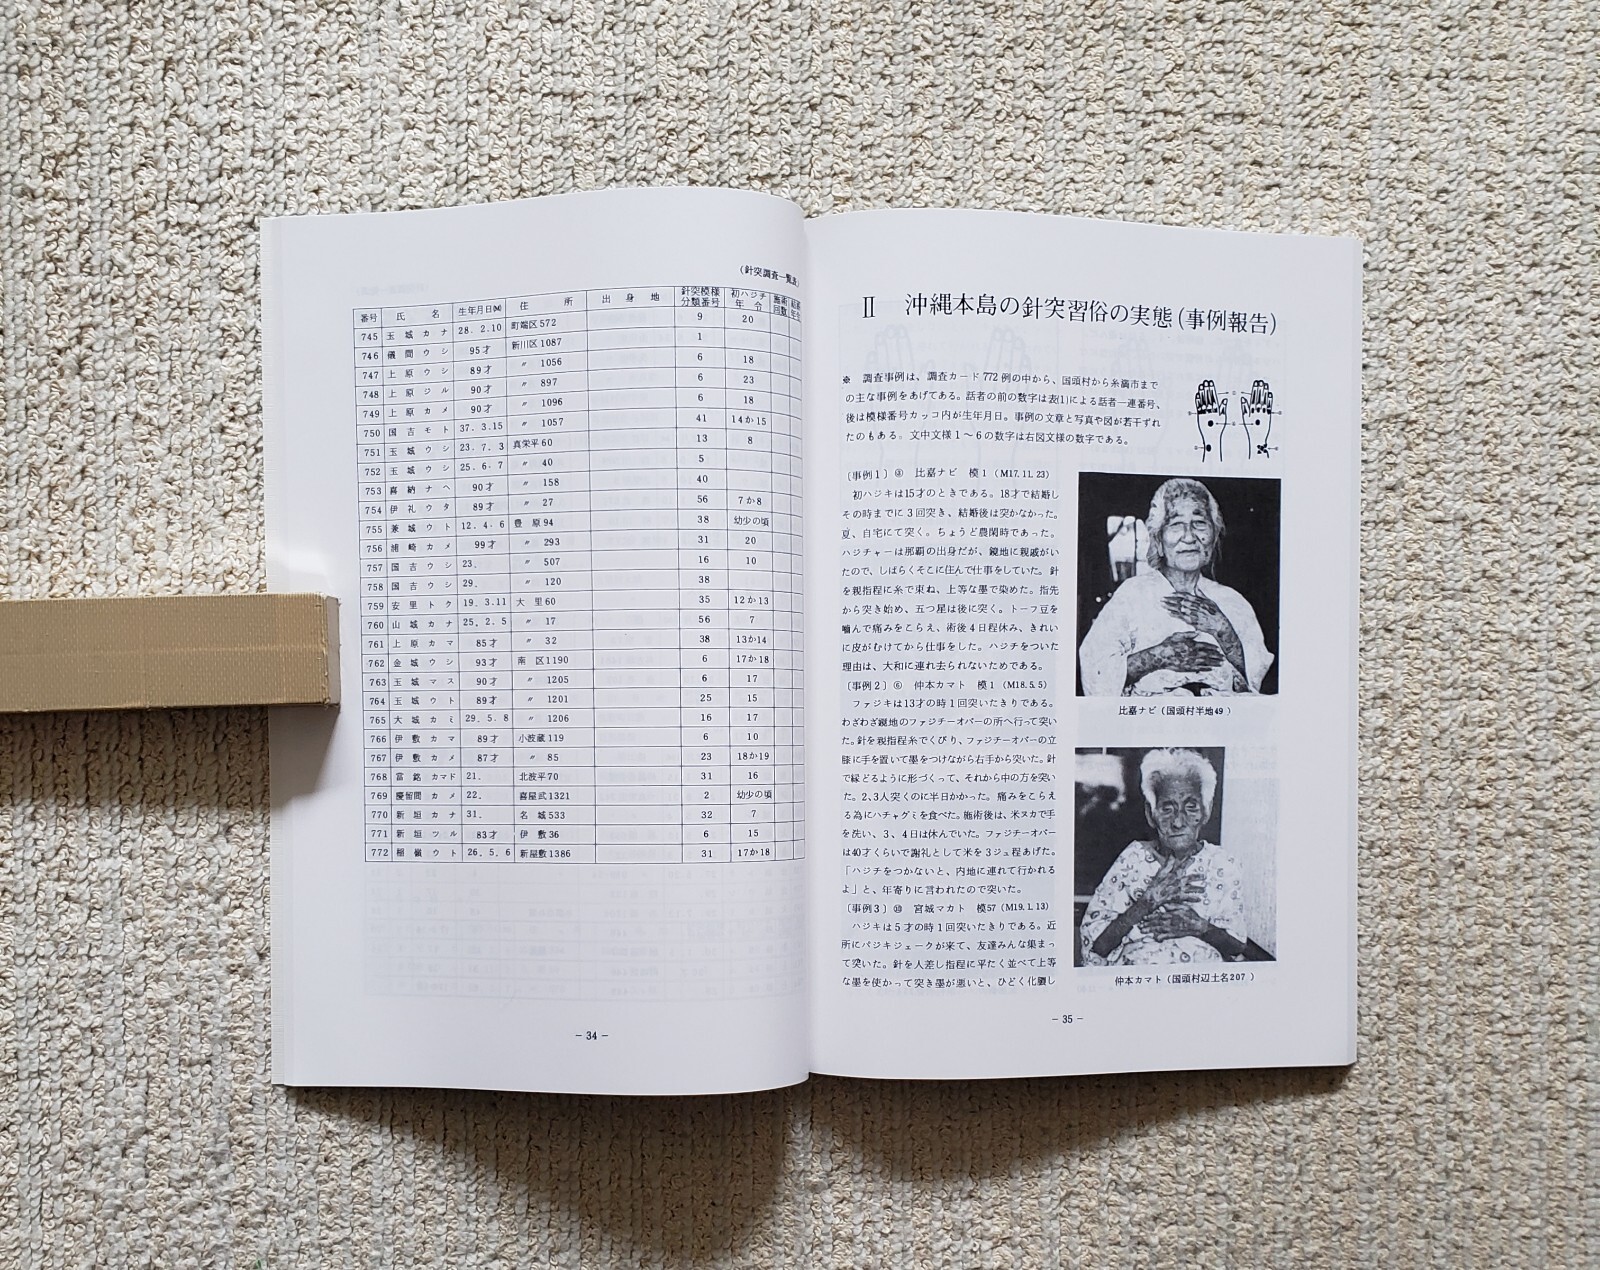 (針突調査一覧表)
番号 氏名 生年月日(M) 住所 出身地 針突模様分類番号 初ハジチ年令 施術回数 結婚年令
745 玉城カナ 28.2.10 町端区572 9 20
746 儀間ウシ 95才 新川区1087 1
747 上原ウシ 89才 〃 1056 6 18
748 上原ジル 90才 〃 897 6 23
749 上原カメ 90才 〃 1096 6 18
750 国吉モト 37.3.15 〃 1057 41 14か15
751 玉城ウシ 23.7.3 真栄平60 13 8
752 玉城ウシ 25.6.7 〃 40 5
753 喜納ナヘ 90才 〃 158 40
754 伊礼ウタ 89才 〃 27 56 7か8
755 兼城ウト 12.4.6 豊原94 38 幼少の頃
756 浦崎カメ 99才 〃 293 31 20
757 国吉ウシ 23. 〃 507 16 10
758 国吉ウシ 29. 〃 120 38
759 安里トク 19.3.11 大里60 35 12か13
760 山城カナ 25.2.5 〃 17 56 7
761 上原カマ 85才 〃 32 38 13か14
762 金城ウシ 93才 南区1190 6 17か18
763 玉城マス 90才 〃 1205 6 17
764 玉城ウト 89才 〃 1201 25 15
765 大城カミ 29.5.8 〃 1206 16 17
766 伊敷カマ 89才 小波蔵119 6 10
767 伊敷カメ 87才 〃 85 23 18か19
768 富銘カマド 21. 北波平70 31 16
769 慶留間カメ 22. 喜屋武1321 2 幼少の頃
770 新垣カナ 31. 名城533 32 7
771 新垣ツル 83才 伊敷36 6 15
772 稲嶺ウト 26.5.6 新屋敷1386 31 17か18
− 34 −
Ⅱ 沖縄本島の針突習俗の実態(事例報告)
※ 調査事例は、調査カード772例の中から、国頭村から糸満市まで
の主な事例をあげてある。話者の前の数字は表(1)による話者一連番号、
後は模様番号カッコ内が生年月日。事例の文章と写真や図が若干ずれ
たのもある。文中文様1〜6の数字は右図文様の数字である。
〔事例1〕③ 比嘉ナビ 模1(M17.11.23)
初ハジキは15才のときである。18才で結婚し
その時までに3回突き、結婚後は突かなかった。
夏、自宅にて突く。ちょうど農閑時であった。
ハジチャーは那覇の出身だが、鏡地に親戚がい
たので、しばらくそこに住んで仕事をしていた。針
を親指程に糸で束ね、上等な墨で染めた。指先
から突き始め、五つ星は後に突く。トーフ豆を
嚙んで痛みをこらえ、術後4日程休み、きれい
に皮がむけてから仕事をした。ハジチをついた
理由は、大和に連れ去られないためである。
〔事例2〕⑥ 仲本カマト 模1(M18.5.5)
ファジキは13才の時1回突いたきりである。
わざわざ鏡地のファジチーオバーの所へ行って突い
た。針を親指程糸でくびり、ファジチーオバーの立
膝に手を置いて墨をつけながら右手から突いた。針
で縁どるように形づくって、それから中の方を突い
た。2、3人突くのに半日かかった。痛みをこらえ
る為にハチャグミを食べた。施術後は、米ヌカで手
を洗い、3、4日は休んでいた。ファジチーオバー
は40才くらいで謝礼として米を3ジュ程あげた。
「ハジチをつかないと、内地に連れて行かれる
よ」と、年寄りに言われたので突いた。
〔事例3〕⑩ 宮城マカト 模57(M19.1.13)
ハジキは5才の時1回突いたきりである。近
所にパジキジェークが来て、友達みんな集まっ
て突いた。針を人差し指程に平たく並べて上等
な墨を使かって突き墨が悪いと、ひどく化膿し
比嘉ナビ(国頭村半地49)
仲本カマト(国頭村辺土名207)
− 35 −